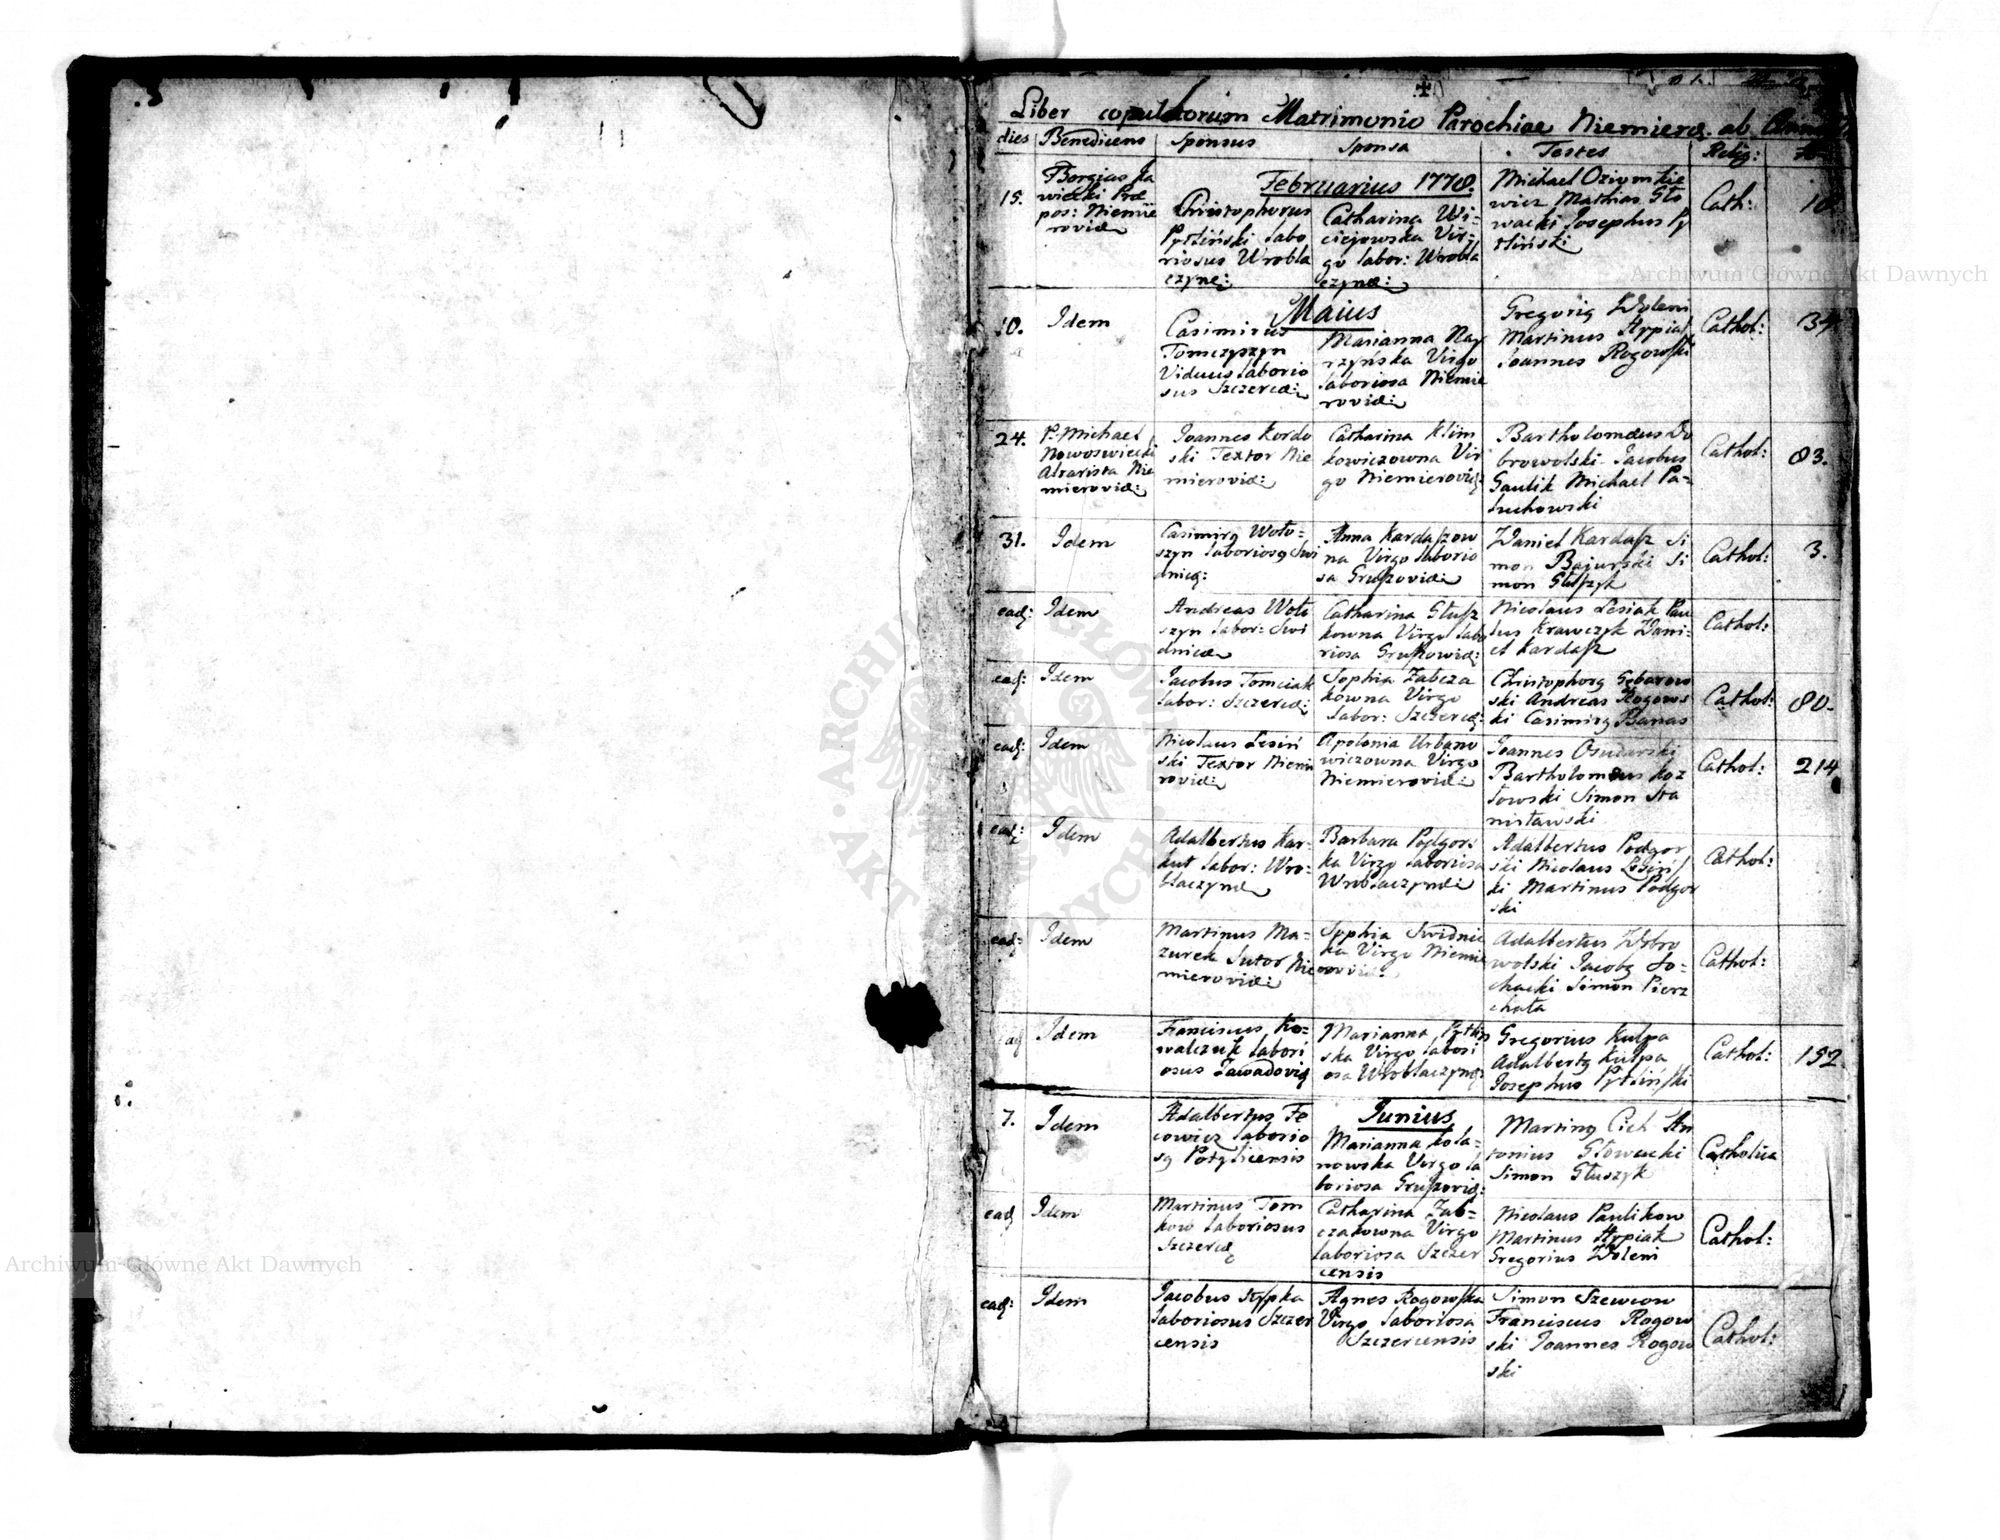 Liber copulatorum Matrimonio Parochiae Niemierov: ab Anno
dies Benedicens Sponsus Sponsa Testes Relig: No
Februarius 1778.
15.
Borgias
Præ
pos: Niemie
roviæ
Christophorus
Pytliński labo
riosus Wrobla
czynæ:
Catharina Wi-
ciejowska Vir-
go labor: Wrobla
czynæ:
Michael Oziomkie
wicz Mathias Gło
wacki Josephus Py
tliński
Cath:
Maius
10.
Idem
Casimirus
Tomczyszyn
Viduus laborio
sus Szczercæ:
Marianna Nay
rzyńska Virgo
laboriosa Niemie
roviæ:
Gregorig Woleni
Martinus Stypiak
Joannes Rogowski
Cathol:
34.
24.
P. Michael
Nowoswiecki
Altarista Nie
mieroviæ:
Joannes Kordo
ski Textor Nie
mieroviæ:
Catharina Klim
kowiczowna Vir
go Niemieroviæ:
Bartholomæus Do
browolski Jacobus
Gaulik Michael Pa-
luchowski
Cathol:
83.
31.
Idem
Casimirg Woło-
szyn laboriosg Swi
dnicæ:
Anna Kardaszow
na Virgo laborio
sa Gruszoviæ:
Daniel Kardasz Si
mon Bajurski Si
mon Głuszyk
Cathol:
3.
ead:
Idem
Andreas Woło
szyn labor: Swi
dnicæ
Catharina Głusz
kowna Virgo labo
riosa Gruszowiæ:
Nicolaus Lesiak Pau
lus Krawczyk Dani-
el Kardasz
Cathol:
ead:
Idem
Jacobus Tomciak
labor: Szczercæ:
Sophia Zabcza
kowna Virgo
labor: Szczercæ:
Christophorg Gebarow
ski Andreas Rogows
ki Casimirg Banas
Cathol:
80.
ead:
Idem
Nicolaus Lesiń
ski Textor Niemie
roviæ:
Apolonia Urbano
wiczowna Virgo
Niemieroviæ:
Joannes Osudarski
Bartholomæus Koz
łowski Simon Sta
nisławski
Cathol:
214
ead:
Idem
Adalbertus Kar-
kut labor: Wro-
blaczynæ
Barbara Podgors
ka Virgo laboriosa
Wroblaczynæ:
Adalbertus Podgor
ski Nicolaus Lesińs
ki Martinus Podgor
ski
Cathol:
ead:
Idem
Martinus Ma-
zurek Sutor Nie
mieroviæ:
Sophia Swidnic
ka Virgo Niemie
roviæ:
Adalbertus Dobro
wolski Jacobg So-
chacki Simon Pierz
chała
Cathol:
ead
Idem
Franciscus Ko-
walczuk labori
osus Zawadoviæ
Marianna Pytlin
ska Virgo labori
osa Wroblaczynæ:
Gregorius Kulpa
Adalbertg Kulpa
Josephus Pytliński
Cathol:
152
Junius
7.
Idem
Adalbertus Fe
cowicz laborio
sg Potylicensis
Marianna Kola-
nowska Virgo la
boriosa Gruszoviæ:
Marting Cich An
tonius Głowacki
Simon Głuszyk
Catholica
ead
Idem
Martinus Tom
kow laboriosus
Szczercæ
Catharina Zab-
czakowna Virgo
laboriosa Szczer
censis
Nicolaus Paulikow
Martinus Stypiak
Gregorius Woleni
Cathol:
ead:
Idem
Jacobus Stypka
laboriosus Szczer
censis
Agnes Rogowska
Virgo laboriosa
Szczercensis
Simon Szewcow
Franciscus Rogow
ski Joannes Rogow
ski
Cathol:
Archiwum Główne Akt Dawnych
Archiwum Główne Akt Dawnych
ARCHIWUM GŁÓWNE AKT DAWNYCH